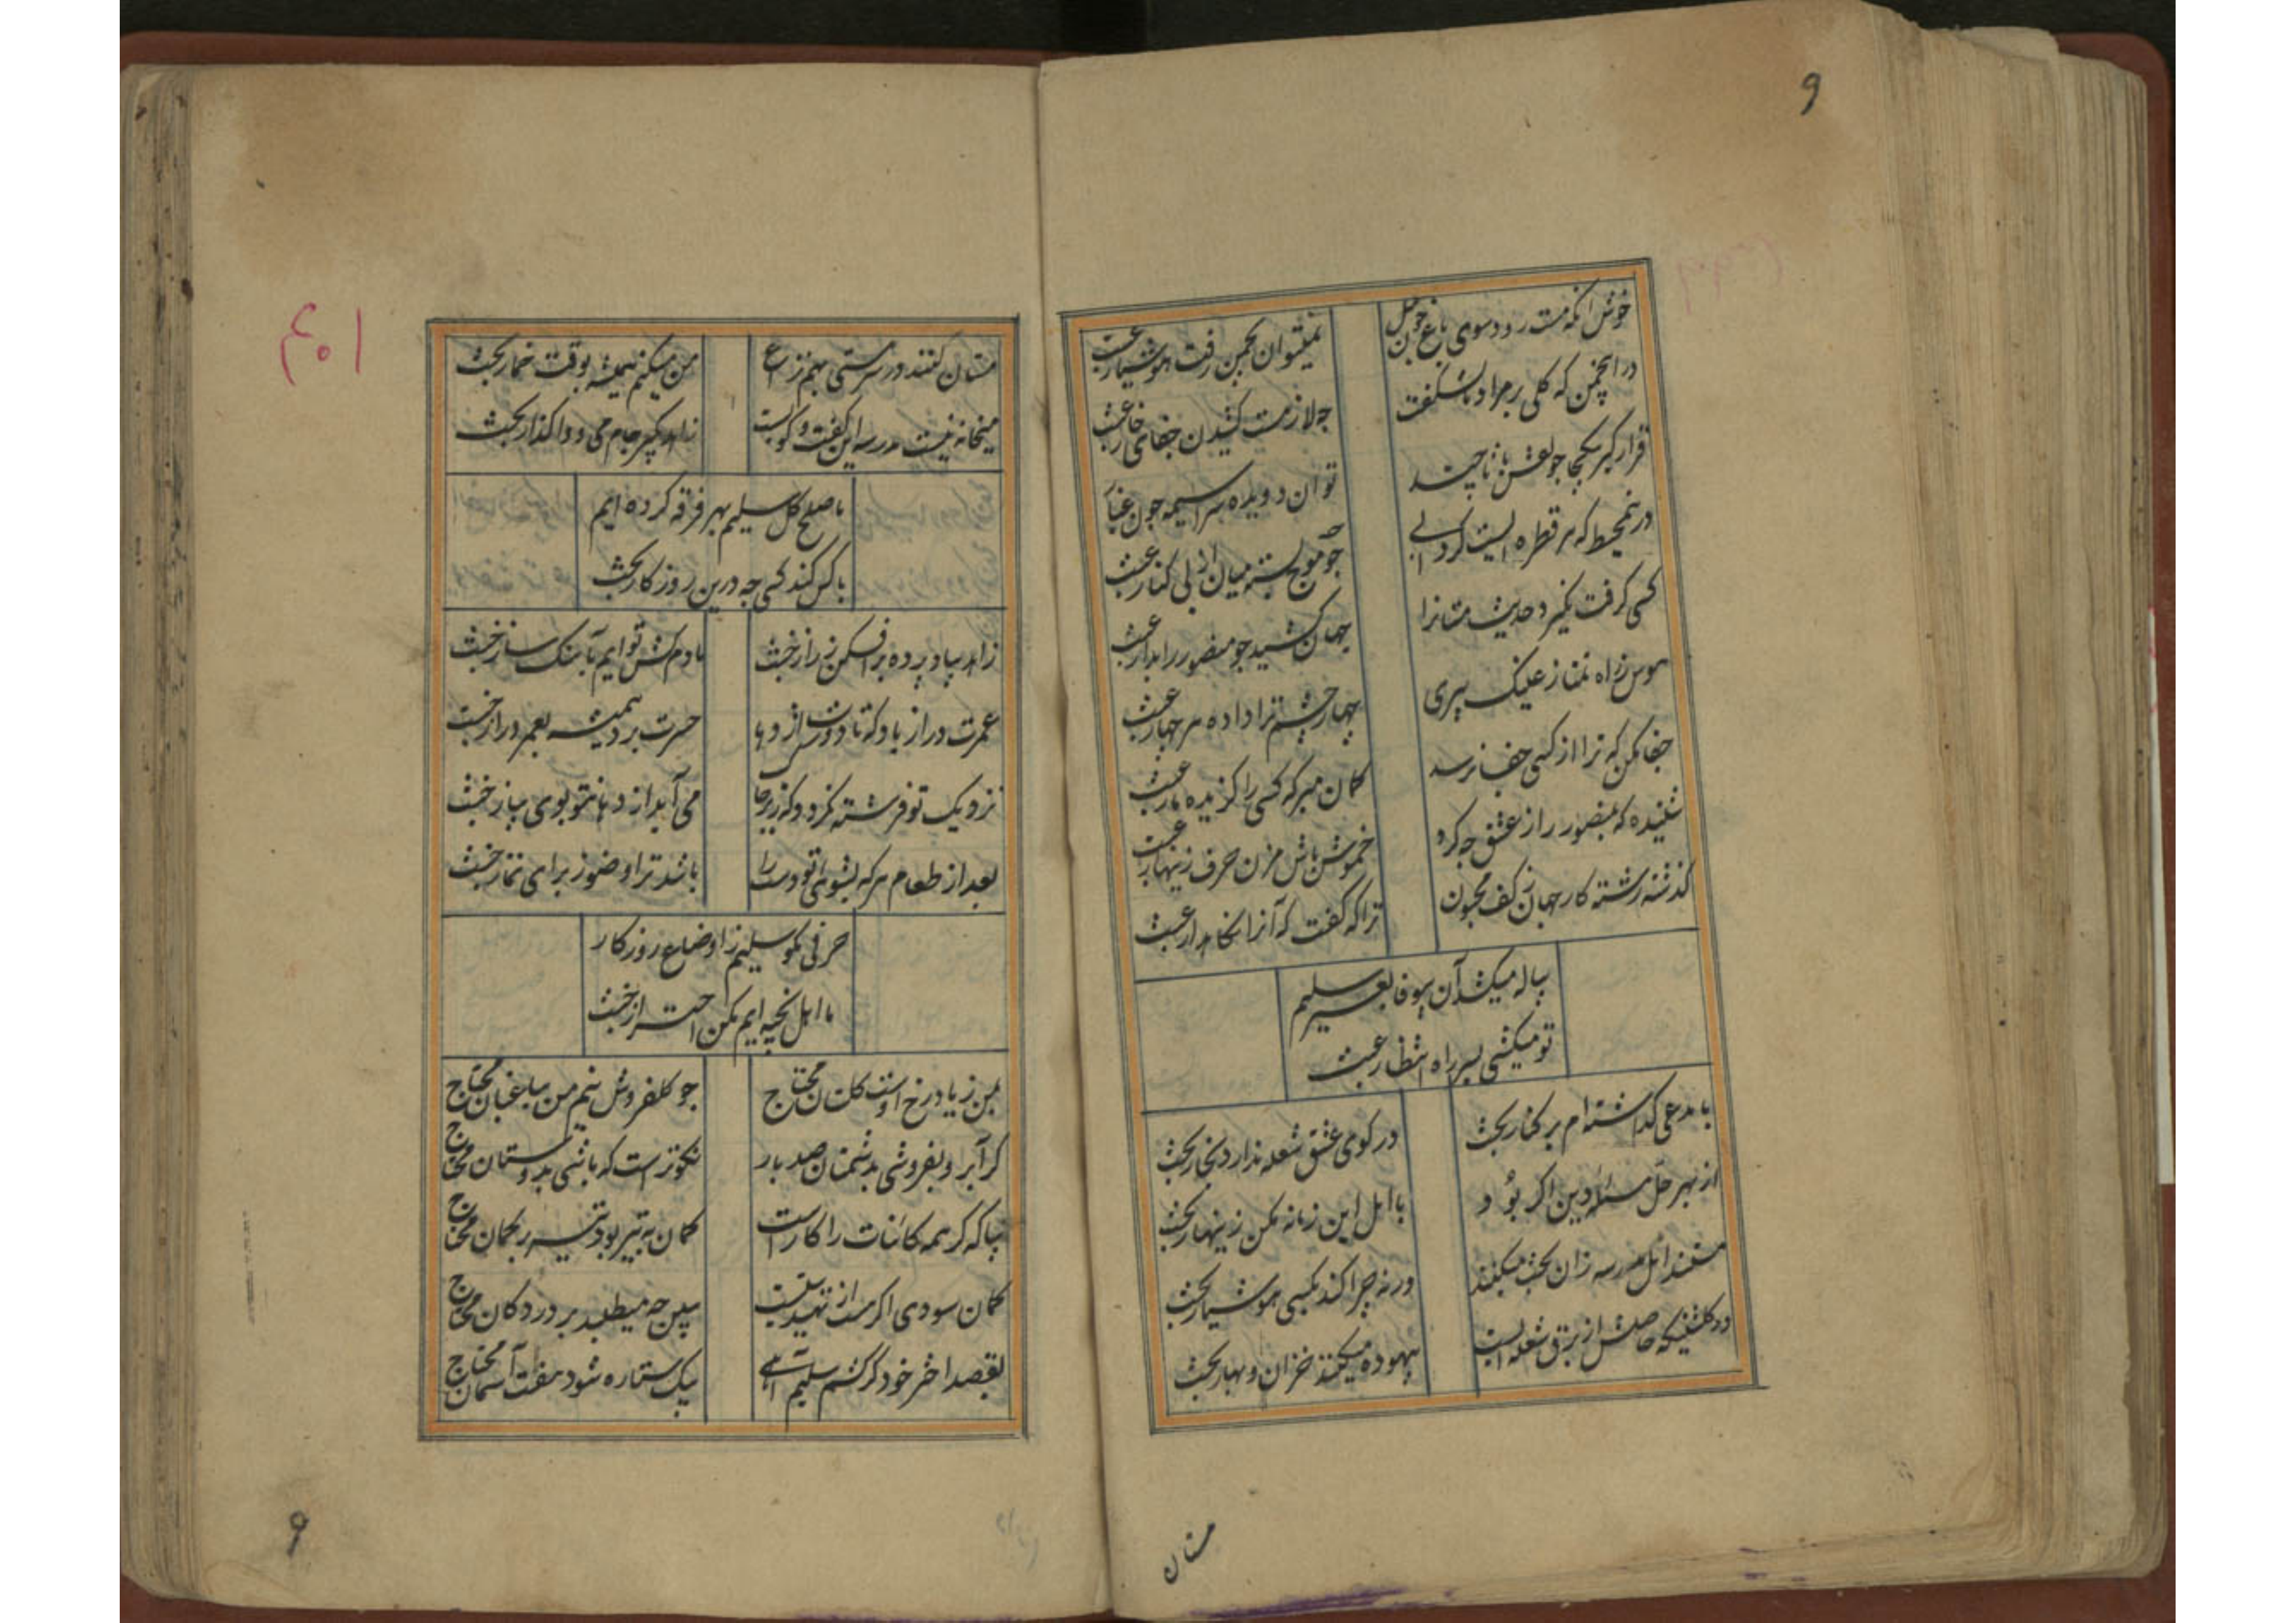 و
خوش آنکه مست رود سوی باغ چون بلبل
نمیتوان بچمن رفت هوشیار عبث
در انچمن که کلی بر مراد نشکفت
چه لازمست کشیدن جفای خار عبث
قرار کیر بیکجا چو نقش پا تا چند
توان دویده سراسیمه چون غبار عبث
درین محیط که هر قطره ایست کردابی
چو موج بسته میان از پی کنار عبث
کسی کرفت نکیرد حدیث مستانرا
جهان کشید چو منصور را بدار عبث
هوس ز راه تماز عینک پیری
چهار چشم ترا داده هر چهار عبث
جفا مکن که ترا از کسی جفا نرسد
کمان مبر که کسی را کزیده مار عبث
شنیده که بمنصور راز عشق چه کرد
خموش باش مزن حرف زینهار عبث
کذشته رشته کار جهان ز کف مجنون
ترا که کفت که آنرا نکاهدار عبث
پیاله میکشد آن بیوفا بغیر سلیم
تو میکشی بسر راه انتظار عبث
با مدعی کذاشته ام بر کنار بحث
در کوی عشق شعله ندارد بخار بحث
از بهر حل مسئله دین اکر بود
با اهل این زمانه مکن زینهار بحث
مستند اهل مدرسه زان بحث میکنند
ورنه چرا کند بکسی هوشیار بحث
در کلشنیکه حاصلش از برق شعله ایست
بیهوده میکنند خزان و بهار بحث
مستان
۴۰۱
مستان کنند در سر مستی بهم نزاع
من میکنم همیشه بوقت خمار بحث
میخانه نیست مدرسه این کفت و کو بست
زاهد بکیر جام می و واکذار بحث
ما صلح کل سلیم بهر فرقه کرده ایم
با کس کند کسی چه درین روزکار بحث
زاهد بیا و پرده برافکن ز راز خبث
ما دم کش توایم بآهنک ساز خبث
عمرت دراز باد که تا دوش اژدها
حسرت برد همیشه بعمر دراز خبث
نزدیک تو فرشته نکردد که زیرخا
می آید از دهانتو بوی پیاز خبث
بعد از طعام هر که بشوئی تو دست را
باشد ترا وضو ز برای نماز خبث
حرفی بکو سلیم ز اوضاع روزکار
ما اهل بخیه ایم مکن احتراز خبث
بمن زیاد رخ اوست کلستان محتاج
چو کلفروش نیم من بباغبان محتاج
کر آبرو بفروشی بدشمنان صد بار
نکوترست که باشی بدوستان محتاج
بیا که کر همه کائنات را کار است
کمان به تیر بود تیر بر کمان محتاج
کمان سودی اکر هست از تهیدستیست
ببین چه میطلبد بر در دکان محتاج
بقصد اختر خود کر کشم سلیم آهی
بیک ستاره شود هفت آسمان محتاج
و